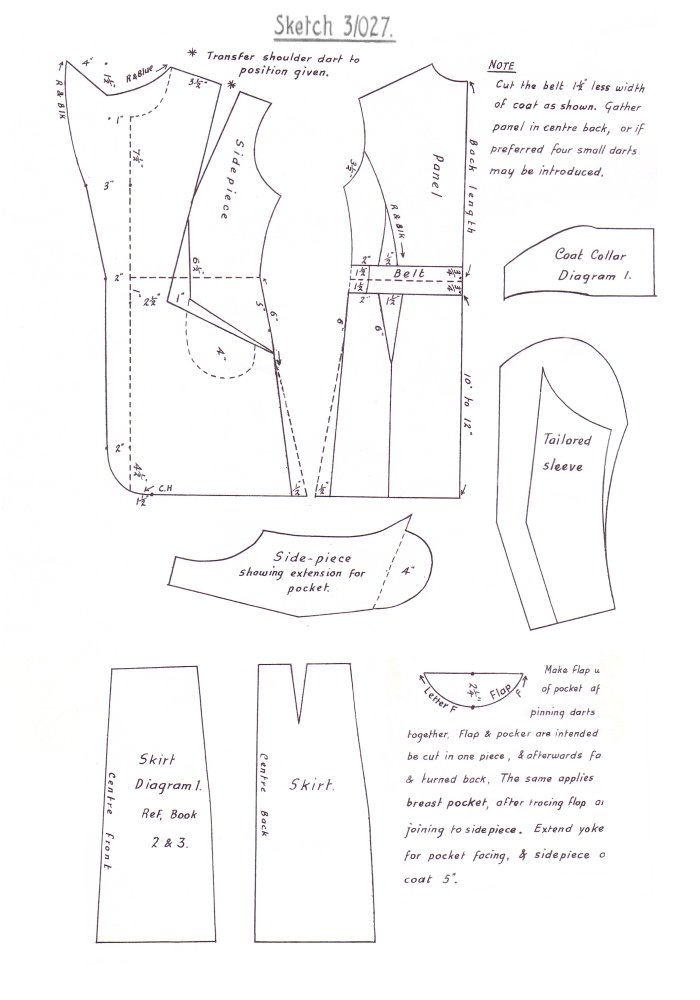 Sketch 3/027.
* Transfer shoulder dart to
position given.
NOTE
Cut the belt 1½" less width
of coat as shown. Gather
panel in centre back, or if
preferred four small darts
may be introduced.
4"
1½"
R & Blue
3½"
*
R & Blk
1"
7½"
3"
Sidepiece
3½"
Panel
Back length
R & Blk
6½"
2"
1½"
1½"
Belt
¾"
¾"
1½"
¾"
¾"
2"
1½"
2"
1"
2½"
1"
5"
6"
6"
6"
4"
10" to 12"
2"
4½"
C.H
1½"
1½"
1½"
Coat Collar
Diagram 1.
Tailored
sleeve
Side-piece
showing extension for
pocket.
4"
Skirt
Diagram 1.
Ref, Book
2 & 3.
Centre Front
Skirt.
Centre Back
Letter F
2¼"
Flap
F
Make Flap u
of pocket af
pinning darts
together. Flap & pocker are intended
be cut in one piece, & afterwards fa
& turned back. The same applies
breast pocket, after tracing flap ar
joining to sidepiece. Extend yoke
for pocket facing, & sidepiece o
coat 5".